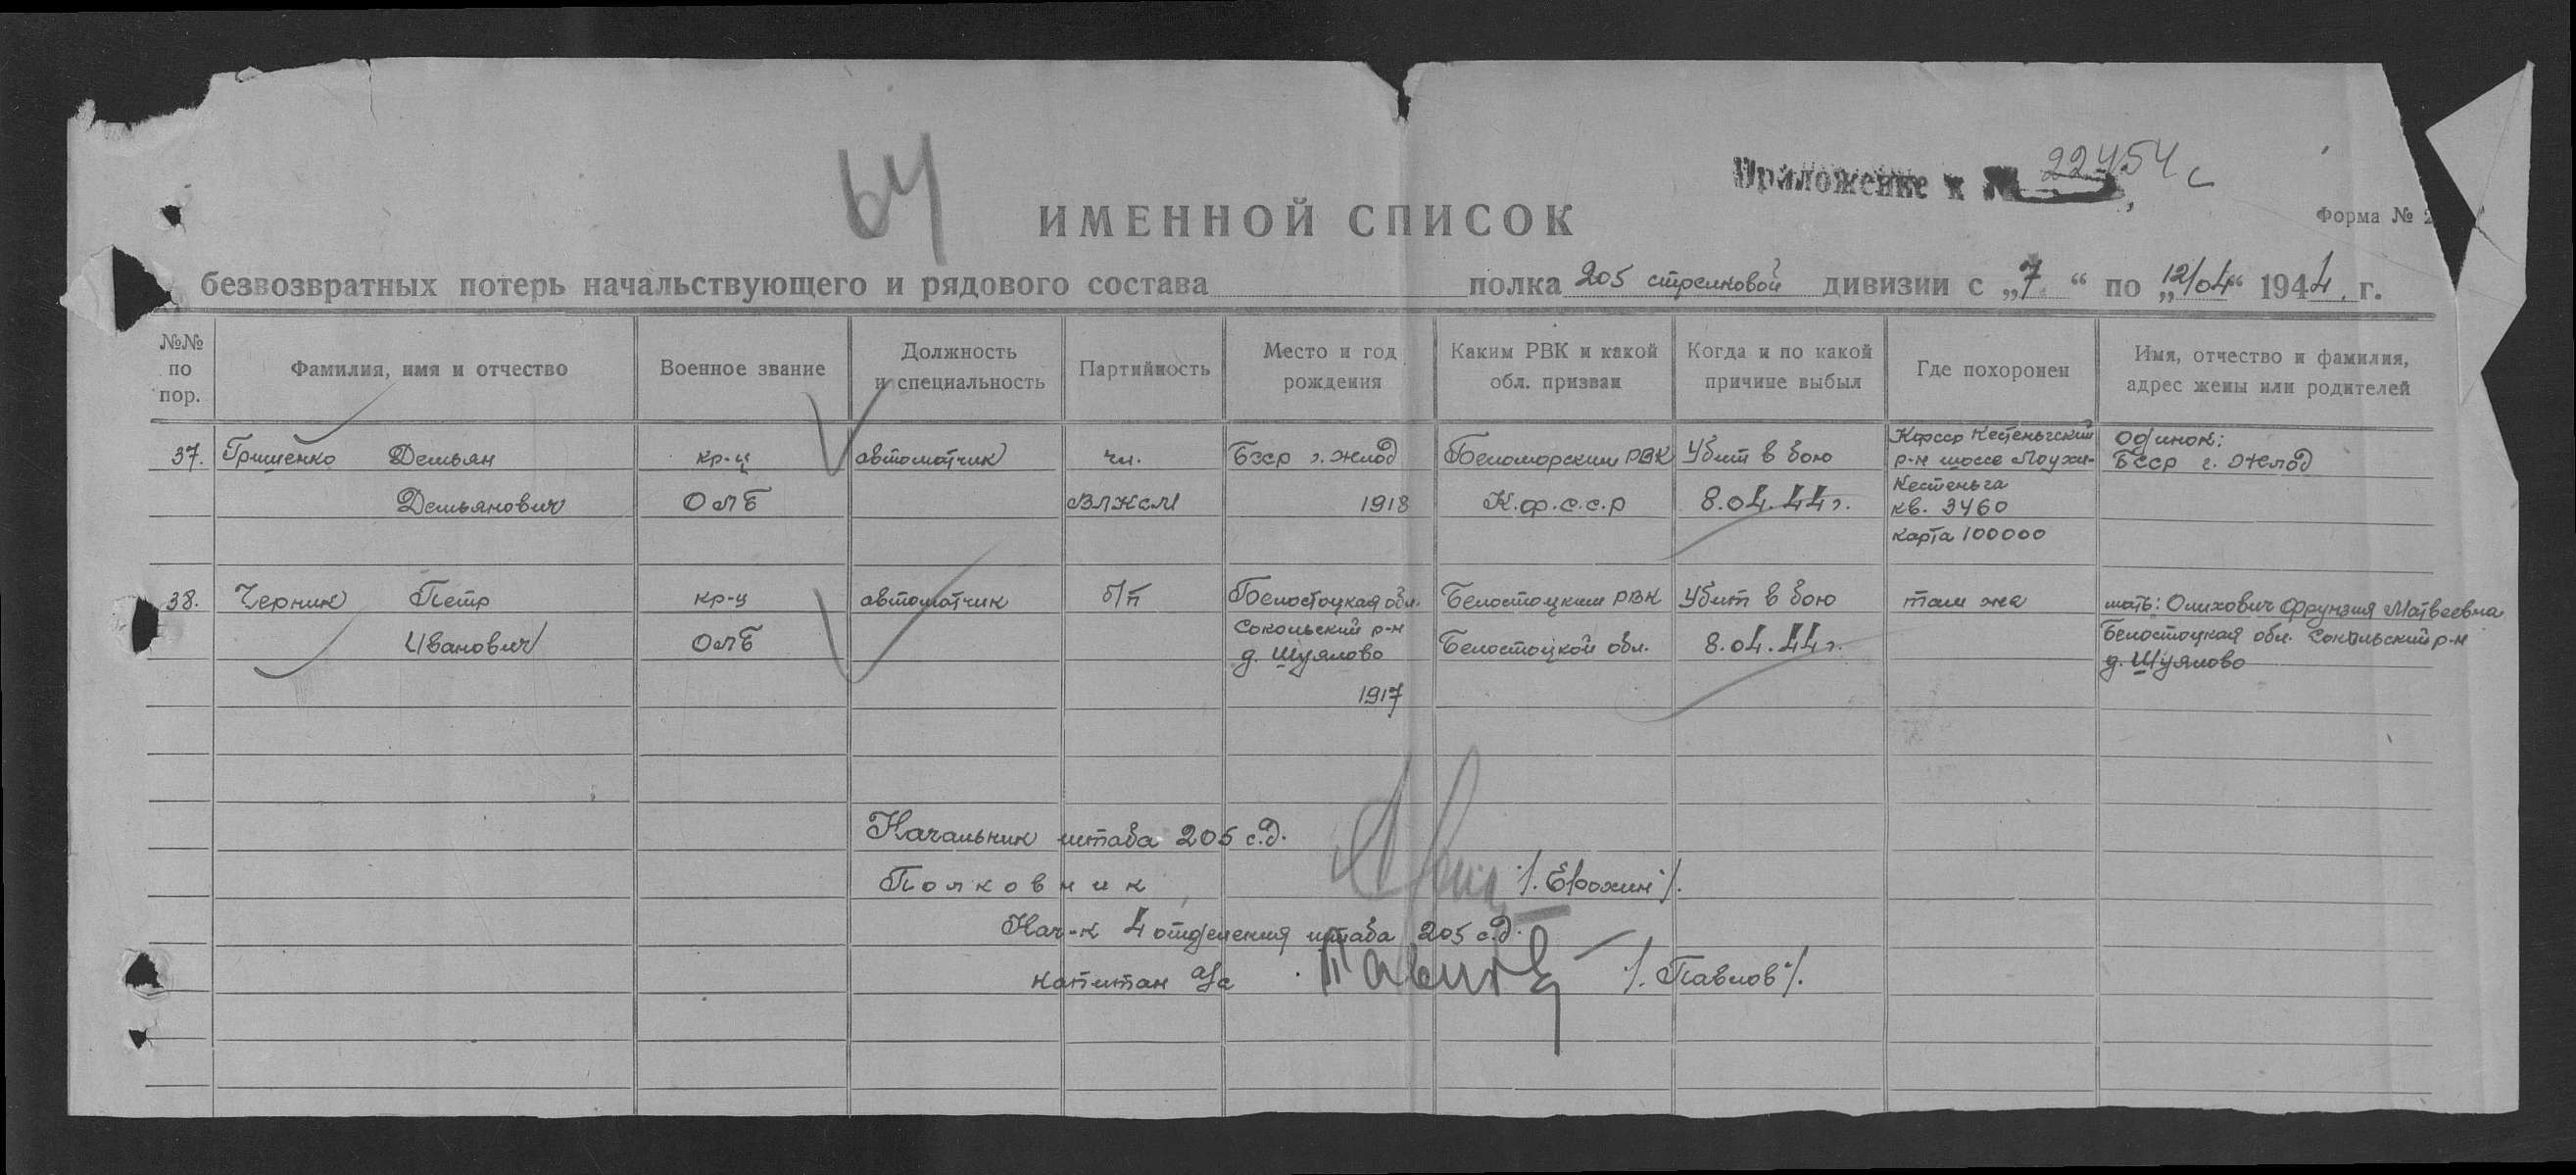 64
Приложение к № 22454 с
ИМЕННОЙ СПИСОК
Форма №
безвозвратных потерь начальствующего и рядового состава полка 205 стрелковой дивизии с „7“ по „12/04“ 1944 г.
№№ по пор.
Фамилия, имя и отчество
Военное звание
Должность и специальность
Партийность
Место и год рождения
Каким РВК и какой обл. призван
Когда и по какой причине выбыл
Где похоронен
Имя, отчество и фамилия, адрес жены или родителей
37. Гришенко Демьян кр-ц автоматчик чл. БССР г. Жлоб Беломорским РВК Убит в бою Кфсср Кестеньгский р-н шоссе Лоухи- Одинок: БССР г. Жлоб
Демьянович ОЛБ ВЛКСМ 1918 К.ф.с.с.р 8.04.44г. Кестеньга кв. 3460
карта 100000
38. Черник Петр кр-ц автоматчик б/п Белостоцкая обл. Белостоцким РВК Убит в бою там же мать: Олихович Фрунзия Матвеевна
Иванович ОЛБ Сокольский р-н д. Шуялово Белостоцкой обл. 8.04.44г. Белостоцкая обл. Сокольский р-н д. Шуялово
1917
Начальник штаба 205 с.д.
Полковник /. Ерохин /.
Нач-к 4 отделения штаба 205 с.д.
капитан а/с Павлов /. Павлов /.